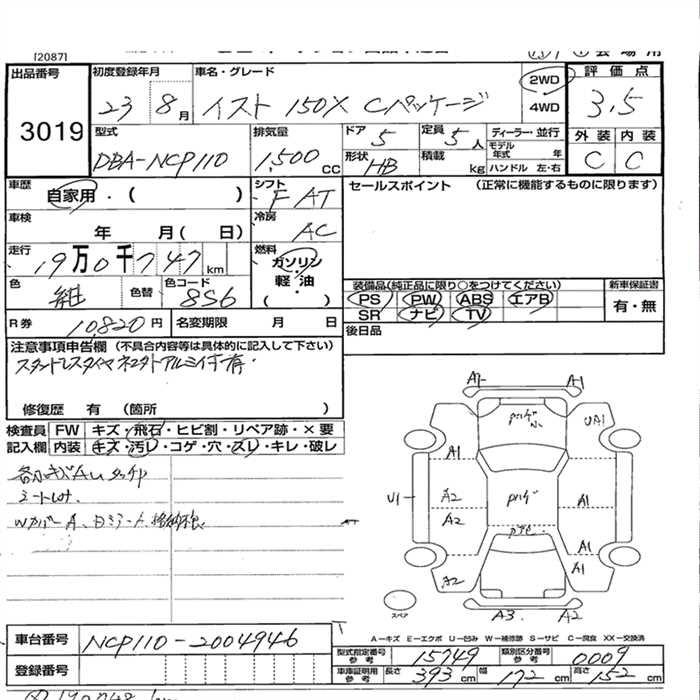 [2087]
出品番号 初度登録年月 車名・グレード 2WD 評価点
3019 23 8月 イスト 150X Cパッケージ 4WD 3.5
型式 排気量 ドア 5 定員 5人 ディーラー・並行 外装 内装
DBA-NCP110 1,500cc 形状 HB 積載 kg モデル年式 年 ハンドル 左・右 C C
車歴 自家用・( ) シフト F AT セールスポイント (正常に機能するものに限ります)
車検 年 月( 日) 冷房 AC
走行 19万0千747km 燃料 ガソリン・軽油・( )
色 紺 色替 色コード 8S6 装備品(純正品に限り○をつけてください) 新車保証書
PS PW ABS エアB 有・無
SR ナビ TV
R券 10,820円 名変期限 月 日 後日品
注意事項申告欄 (不具合内容等は具体的に記入して下さい)
修復歴 有 (箇所 )
検査員 FW キズ・飛石・ヒビ割・リペア跡・×要
記入欄 内装 キズ・汚レ・コゲ・穴・スレ・キレ・破レ
A1 A1
UA1
A1
U1 A2 A1
A2
A1
A2 A1
スペア
A3 A2
A－キズ E－エクボ U－凹み W－補修跡 S－サビ C－腐食 XX－交換済
車台番号 NCP110-2004946
型式指定番号参考 15749 類別区分番号参考 0009
登録番号
車庫証明用参考 長さ 393cm 幅 172cm 高さ 152cm